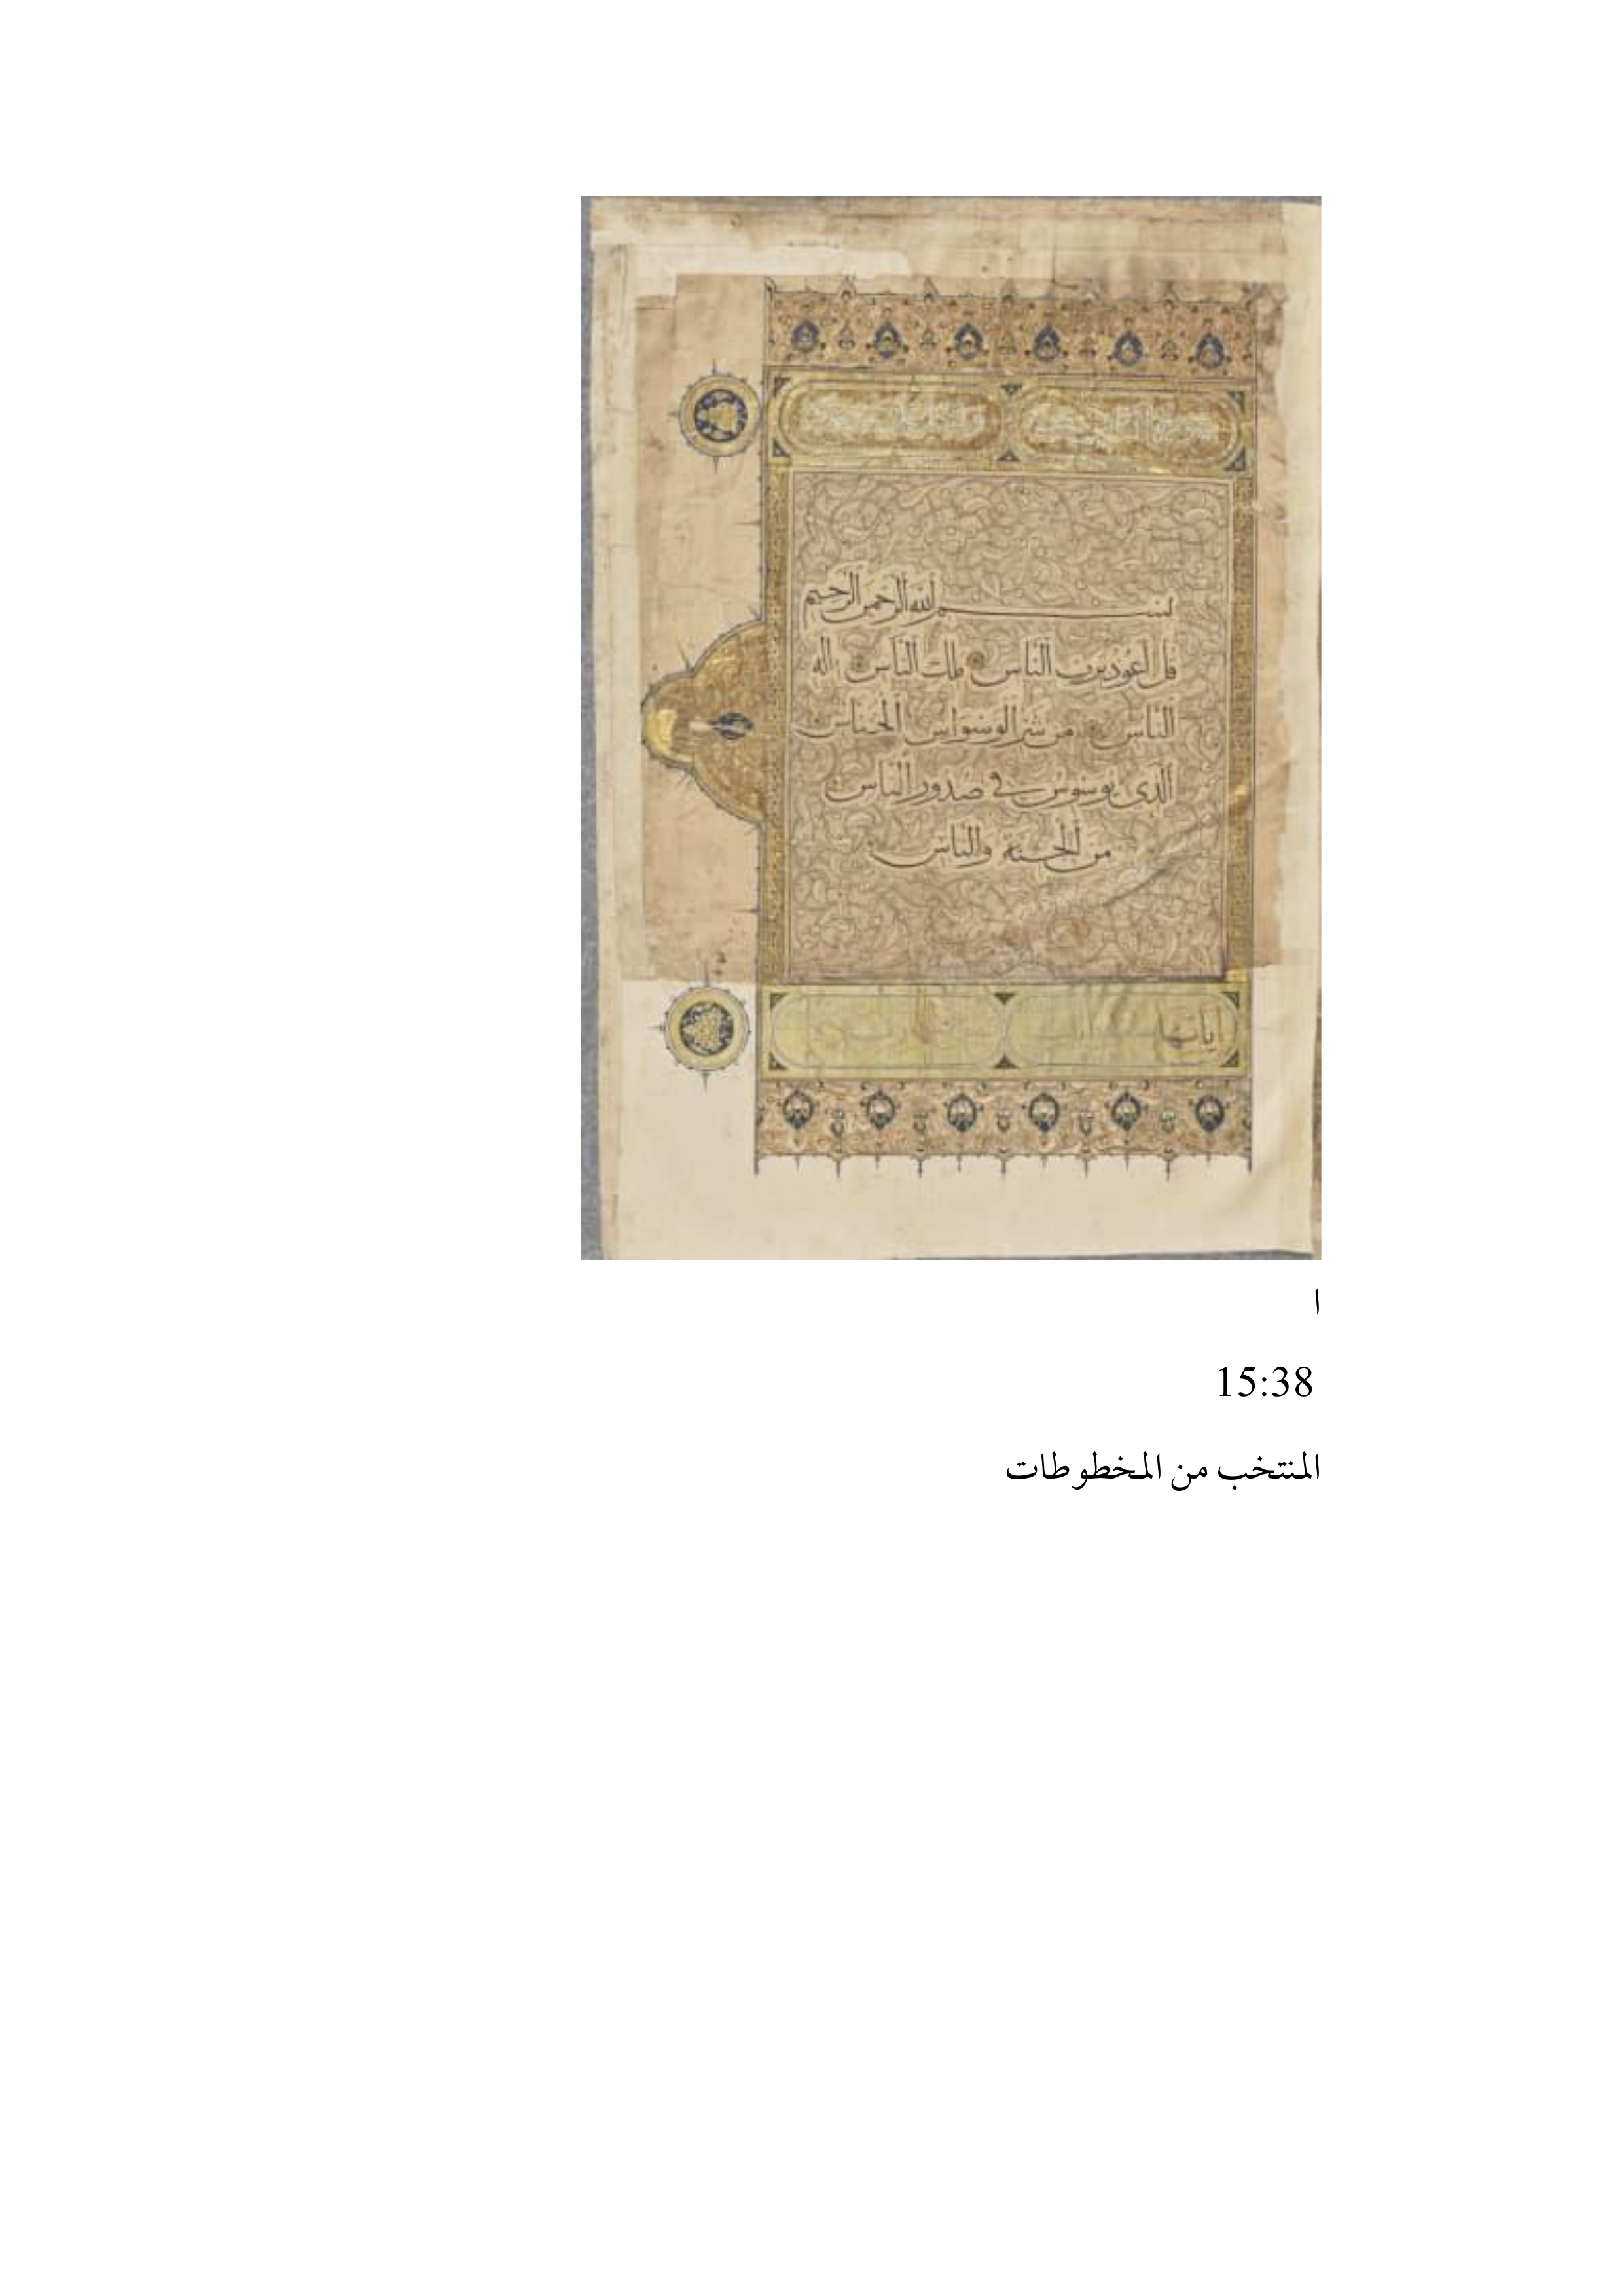 بسم الله الرحمن الرحيم
قل أعوذ برب الناس ملك الناس إله
الناس من شر الوسواس الخناس
الذى يوسوس في صدور الناس
من الجنة والناس
اياتها
ا
15:38
المنتخب من المخطوطات